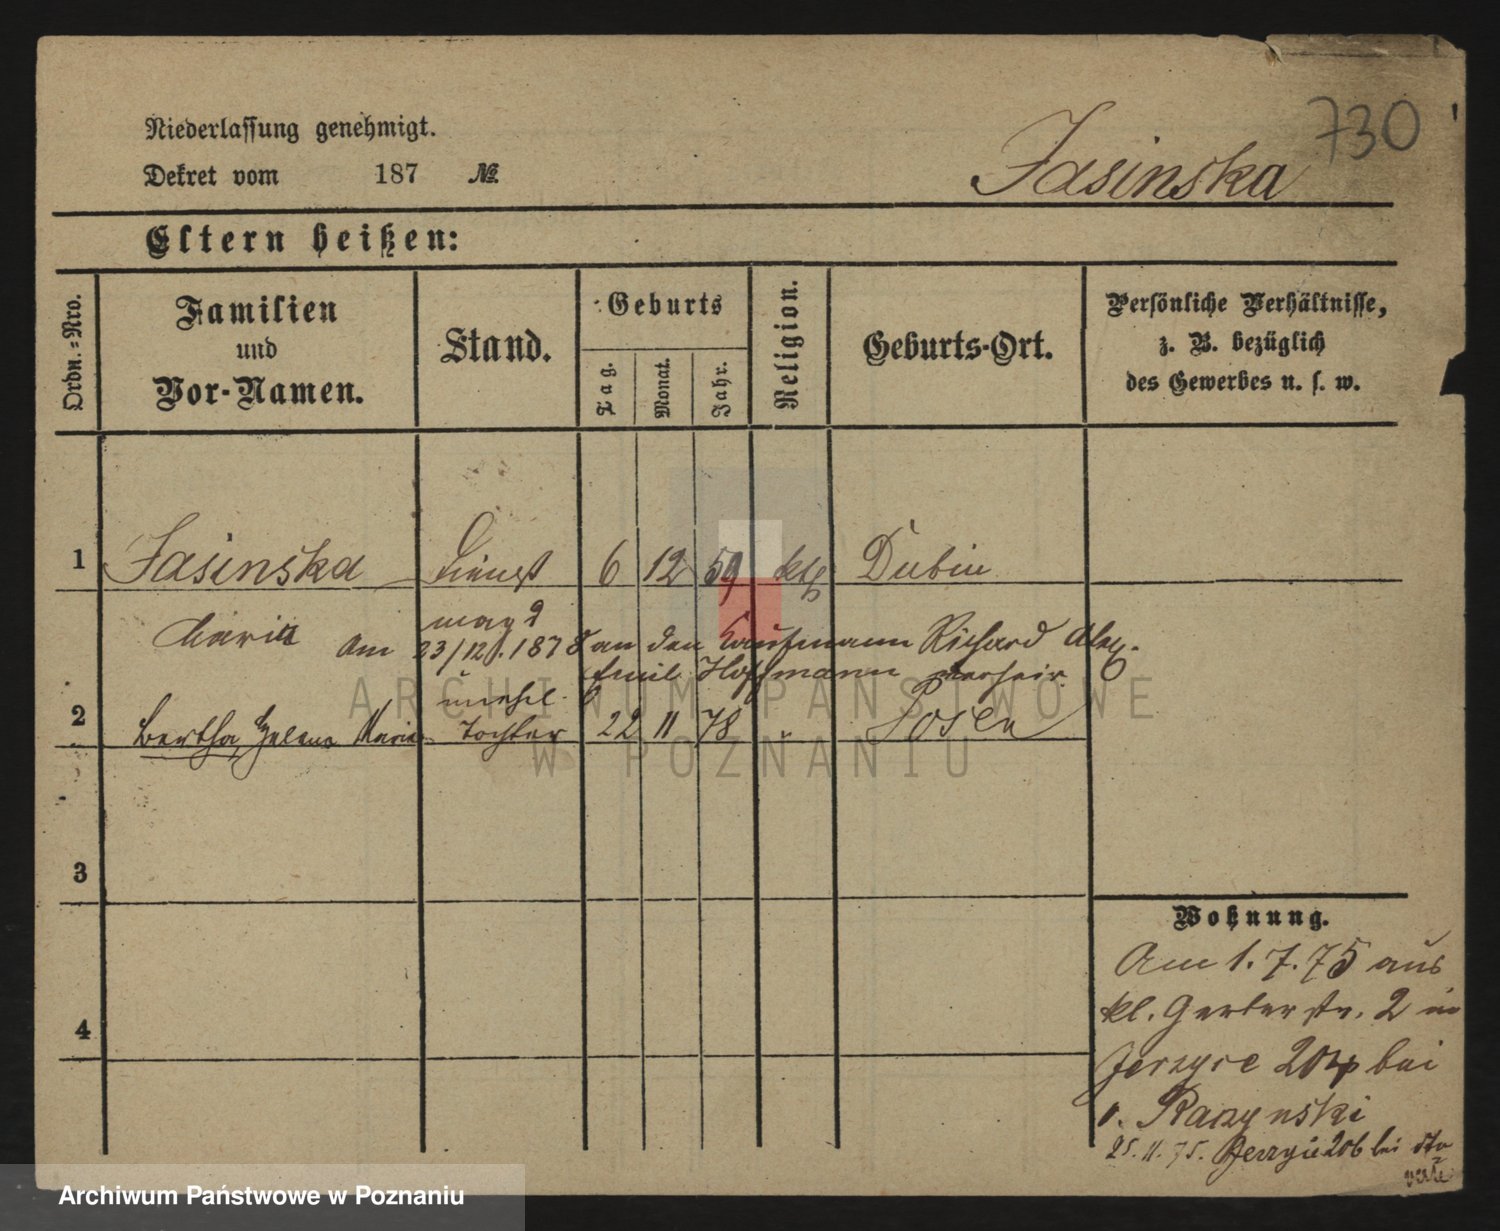 730
Niederlassung genehmigt.
Dekret vom 187 №
Jasinska
Eltern heißen:
Ordn.=Nro.
Familien
und
Vor-Namen.
Stand.
Geburts
Tag.
Monat.
Jahr.
Religion.
Geburts-Ort.
Persönliche Verhältnisse,
z. B. bezüglich
des Gewerbes u. s. w.
1 Jasinska Dienst 6 12 59 ktg Dubin
Maria magd
Am 23/12.1878 an den Kaufmann Richard Alex.
Emil Hoffmann verheir.
unehl.
2 Bertha Helena Maria Tochter 22 11 78 " Posen
3
4
Wohnung.
Am 1.7.75 aus
kl. Gerberstr. 2 in
Jerzyce 204 bei
v. Raczynski
25.11.75. Jerzyce 206 bei
ARCHIWUM PAŃSTWOWE
W POZNANIU
Archiwum Państwowe w Poznaniu